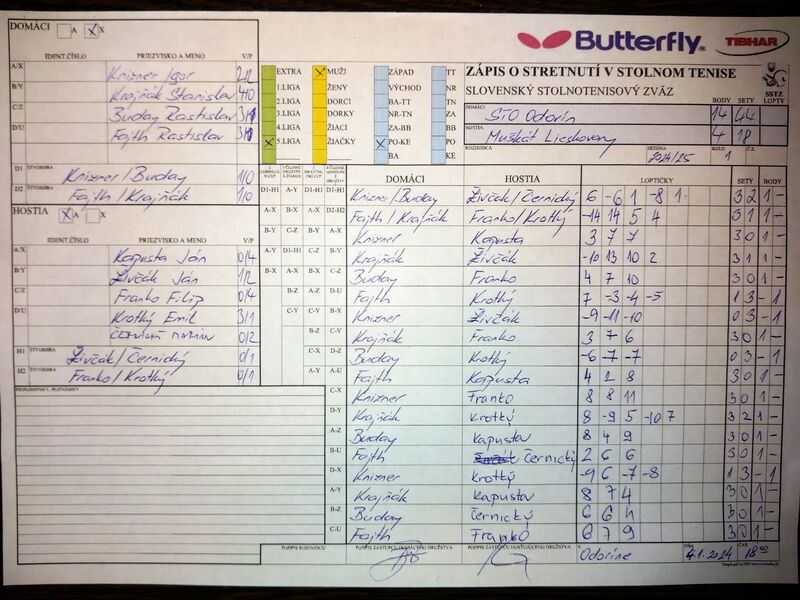 DOMÁCI A X
IDENT.ČÍSLO PRIEZVISKO A MENO V/P
A/X Knizner Igor 2/2
B/Y Krajňák Stanislav 4/0
C/Z Buday Rastislav 3/1
D/U Fajth Rastislav 3/1
D1 ŠTVORHRA Knizner/Buday 1/0
D2 ŠTVORHRA Fajth/Krajňák 1/0
HOSTIA A X
IDENT.ČÍSLO PRIEZVISKO A MENO V/P
A/X Kapusta Ján 0/4
B/Y Živčák Ján 1/2
C/Z Franko Filip 0/4
D/U Krotký Emil 3/1
0/2
H1 ŠTVORHRA Živčák/Černický 0/1
H2 ŠTVORHRA Franko/Krotký 0/1
PRIPOMIENKY, POZNÁMKY
Butterfly TIBHAR
EXTRA MUŽI ZÁPAD TT
1.LIGA ŽENY VÝCHOD NR
2.LIGA DORCI BA-TT TN
3.LIGA DORKY NR-TN ZA
4.LIGA ŽIACI ZA-BB BB
5.LIGA ŽIAČKY PO-KE PO
BA KE
ZÁPIS O STRETNUTÍ V STOLNOM TENISE
SLOVENSKÝ STOLNOTENISOVÝ ZVÄZ
SSTZ
BODY SETY LOPTY
DOMÁCI STO Odorín 14 44
HOSTIA Muškát Lieskovany 4 18
ROZHODCA SEZÓNA 2024/25 KOLO 1
DOMÁCI HOSTIA LOPTIČKY SETY BODY
D1-H1 A-Y D1-H1 D1-H1 Knizner/Buday Živčák/Černický 6 -6 1 -8 1 3 2 1 -
A-X B-X A-X D2-H2 Fajth/Krajňák Franko/Krotký -14 14 5 4 3 1 1 -
B-Y C-Z B-Y A-X Knizner Kapusta 3 7 7 3 0 1 -
A-Y D1-H1 C-Z B-Y Krajňák Živčák -10 13 10 2 3 1 1 -
B-X A-X B-X C-Z Buday Franko 4 7 10 3 0 1 -
B-Z A-Z D-U Fajth Krotký 7 -3 -4 -5 1 3 - 1
C-Y C-Y B-X Knizner Živčák -9 -11 -10 0 3 - 1
B-Z C-Y Krajňák Franko 3 7 6 3 0 1 -
C-X D-Z Buday Krotký -6 -7 -7 0 3 - 1
A-Y A-U Fajth Kapusta 4 2 8 3 0 1 -
C-X Knizner Franko 8 8 11 3 0 1 -
D-Y Krajňák Krotký 8 -9 5 -10 7 3 2 1 -
A-Z Buday Kapusta 8 4 9 3 0 1 -
B-U Fajth Černický 2 6 6 3 0 1 -
D-X Knizner Krotký -9 6 -7 -8 1 3 - 1
A-Y Krajňák Kapusta 8 7 4 3 0 1 -
B-Z Buday Černický 6 6 4 3 0 1 -
C-U Fajth Franko 6 7 9 3 0 1 -
PODPIS ROZHODCU PODPIS ZÁSTUPCU DOMÁCEHO DRUŽSTVA PODPIS ZÁSTUPCU HOSŤUJÚCEHO DRUŽSTVA V Odoríne DŇA ČAS 18